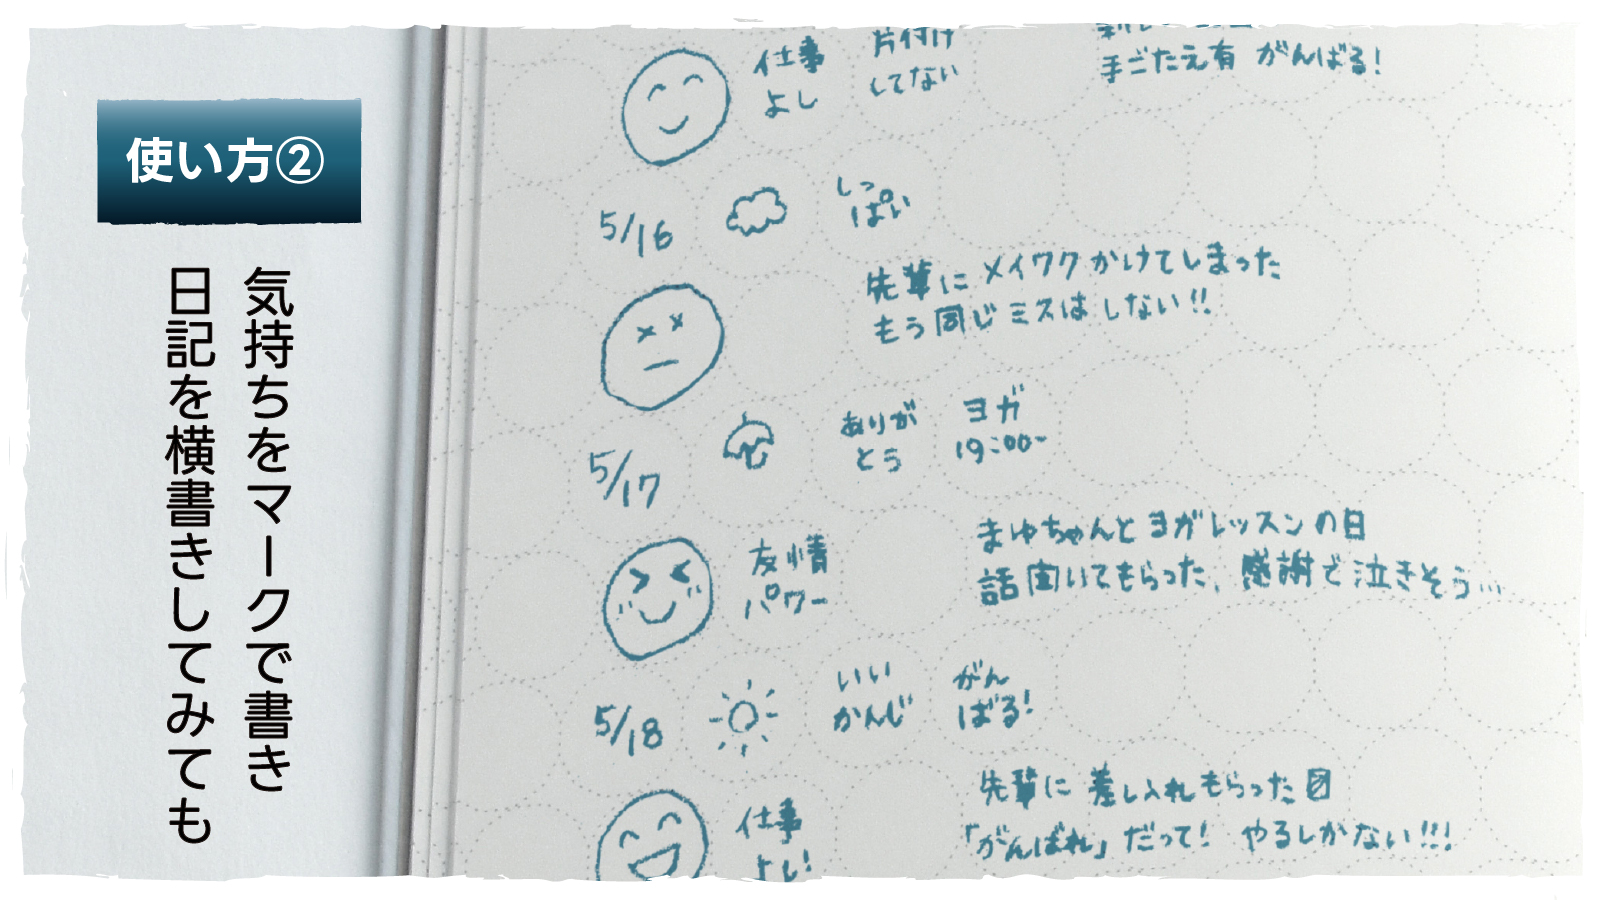 使い方②
気持ちをマークで書き
日記を横書きしてみても
仕事
よし
片付け
してない
手ごたえ有 がんばる!
5/16
しっ
ぱい
先輩に メイワク かけてしまった
もう同じミスは しない!!
5/17
ありが
とう
ヨガ
19:00~
友情
パワー
まゆちゃんと ヨガレッスンの日
話聞いてもらった、感謝で泣きそう…
5/18
いい
かんじ
がん
ばる!
仕事
よし!
先輩に 差し入れもらった
「がんばれ」だって! やるしかない!!!